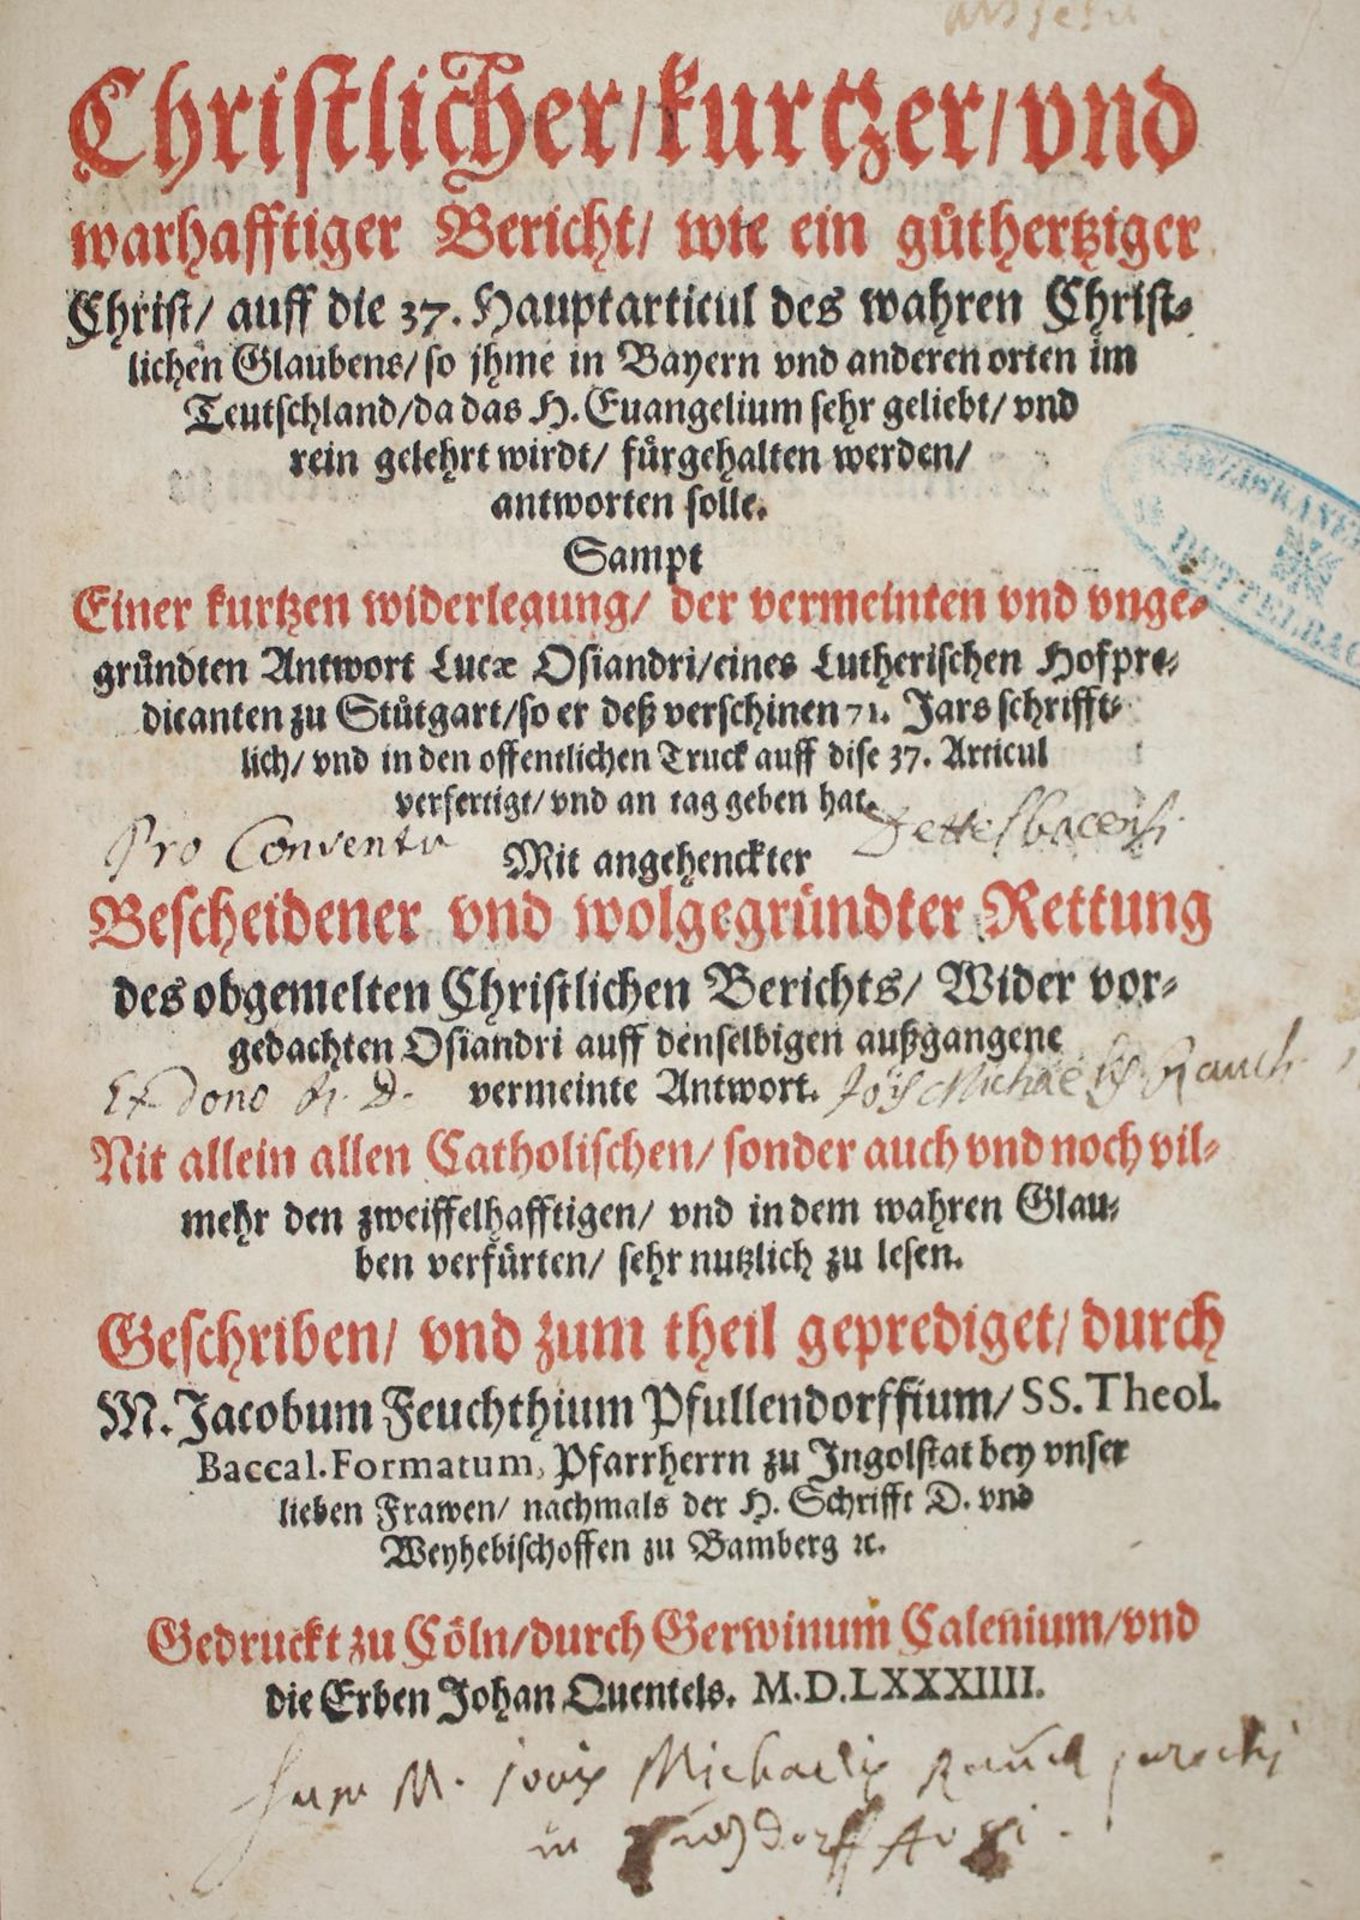 Christlicher/kurtzer/vnd
warhafftiger Bericht/ wie ein gůthertziger
Christ/ auff die 37. Hauptarticul des wahren Christ-
lichen Glaubens/so jhme in Bayern vnd anderen orten im
Teutschland/da das H. Euangelium sehr geliebt/ vnd
rein gelehrt wirdt/ fürgehalten werden/
antworten solle.
Sampt
Einer kurtzen widerlegung/ der vermeinten vnd vnge-
gründten Antwort Lucæ Osiandri/eines Lutherischen Hofpre-
dicanten zu Stůtgart/so er deß verschinen 71. Jars schrifft-
lich/ vnd in den offentlichen Truck auff dise 37. Articul
verfertigt/ vnd an tag geben hat.
Pro Conventu Dettelbacensi
Mit angehenckter
Bescheidener vnd wolgegründter Rettung
des obgemelten Christlichen Berichts/ Wider vor-
gedachten Osiandri auff denselbigen außgangene
vermeinte Antwort.
Ex Dono R. D. Jois Michaelis Rauch
Nit allein allen Catholischen/ sonder auch vnd noch vil-
mehr den zweiffelhafftigen/ vnd in dem wahren Glau-
ben verfürten/ sehr nutzlich zu lesen.
Geschriben/ vnd zum theil geprediget/ durch
M. Jacobum Feuchthium Pfullendorffium/ SS. Theol.
Baccal. Formatum, Pfarrherrn zu Ingolstat bey vnser
lieben Frawen/ nachmals der H. Schrifft D. vnd
Weyhebischoffen zu Bamberg ꝛc.
Gedruckt zu Cöln/durch Gerwinum Calenium/vnd
die Erben Johan Quentels. M.D.LXXXIIII.
M. Jois Michaelis Rauch parochi
in